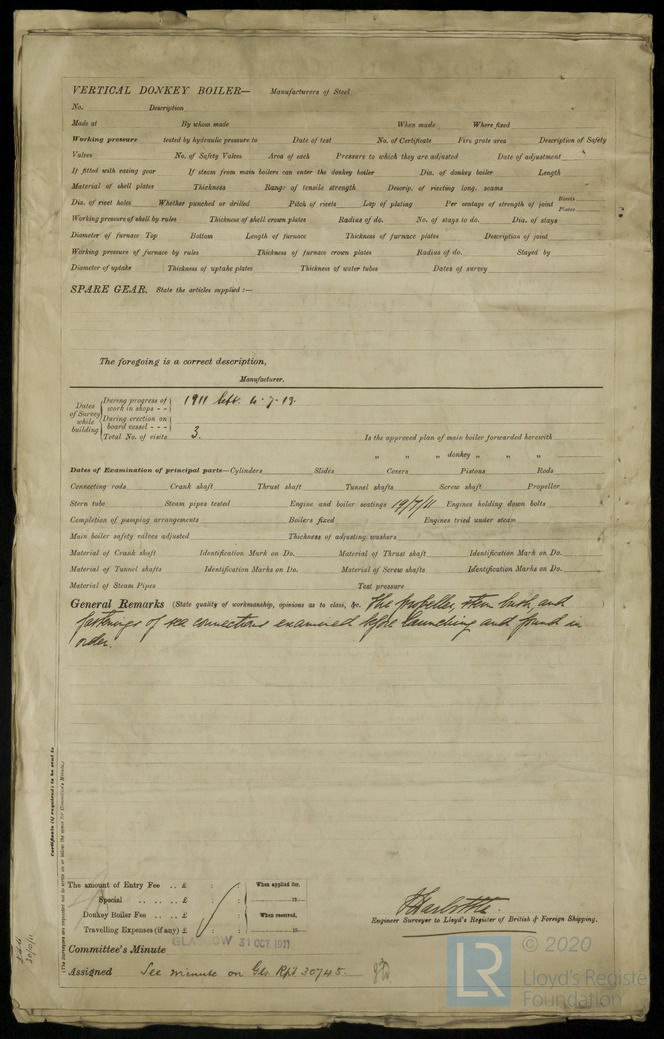 VERTICAL DONKEY BOILER— Manufacturers of Steel
No. Description
Made at By whom made When made Where fixed
Working pressure tested by hydraulic pressure to Date of test No. of Certificate Fire grate area Description of Safety
Valves No. of Safety Valves Area of each Pressure to which they are adjusted Date of adjustment
If fitted with easing gear If steam from main boilers can enter the donkey boiler Dia. of donkey boiler Length
Material of shell plates Thickness Range of tensile strength Descrip. of riveting long. seams
Dia. of rivet holes Whether punched or drilled Pitch of rivets Lap of plating Per centage of strength of joint Rivets Plates
Working pressure of shell by rules Thickness of shell crown plates Radius of do. No. of stays to do. Dia. of stays
Diameter of furnace Top Bottom Length of furnace Thickness of furnace plates Description of joint
Working pressure of furnace by rules Thickness of furnace crown plates Radius of do. Stayed by
Diameter of uptake Thickness of uptake plates Thickness of water tubes Dates of survey
SPARE GEAR. State the articles supplied :—
The foregoing is a correct description,
Manufacturer.
Dates of Survey while building
During progress of work in shops - - 1911 Sept. 4. 7. 13.
During erection on board vessel - - -
Total No. of visits 3.
Is the approved plan of main boiler forwarded herewith
" " " donkey " " "
Dates of Examination of principal parts—Cylinders Slides Covers Pistons Rods
Connecting rods Crank shaft Thrust shaft Tunnel shafts Screw shaft Propeller
Stern tube Steam pipes tested Engine and boiler seatings 19/7/11 Engines holding down bolts
Completion of pumping arrangements Boilers fixed Engines tried under steam
Main boiler safety valves adjusted Thickness of adjusting washers
Material of Crank shaft Identification Mark on Do. Material of Thrust shaft Identification Mark on Do.
Material of Tunnel shafts Identification Marks on Do. Material of Screw shafts Identification Marks on Do.
Material of Steam Pipes Test pressure
General Remarks (State quality of workmanship, opinions as to class, &c. The propeller, stern bush, and )
fastenings of sea connections examined before launching and found in
order.
Certificate (if required) to be sent to
(The Surveyors are requested not to write on or below the space for Committee's Minute.)
The amount of Entry Fee .. £ : : When applied for,
Special .. .. .. £ : : 19
Donkey Boiler Fee .. .. £ : : When received,
Travelling Expenses (if any) £ : : 19
Engineer Surveyor to Lloyd's Register of British & Foreign Shipping.
Committee's Minute GLASGOW 31 OCT 1911
Assigned See minute on Gls. Rpt 30745.
LR
© 2020
Lloyd's Register
Foundation